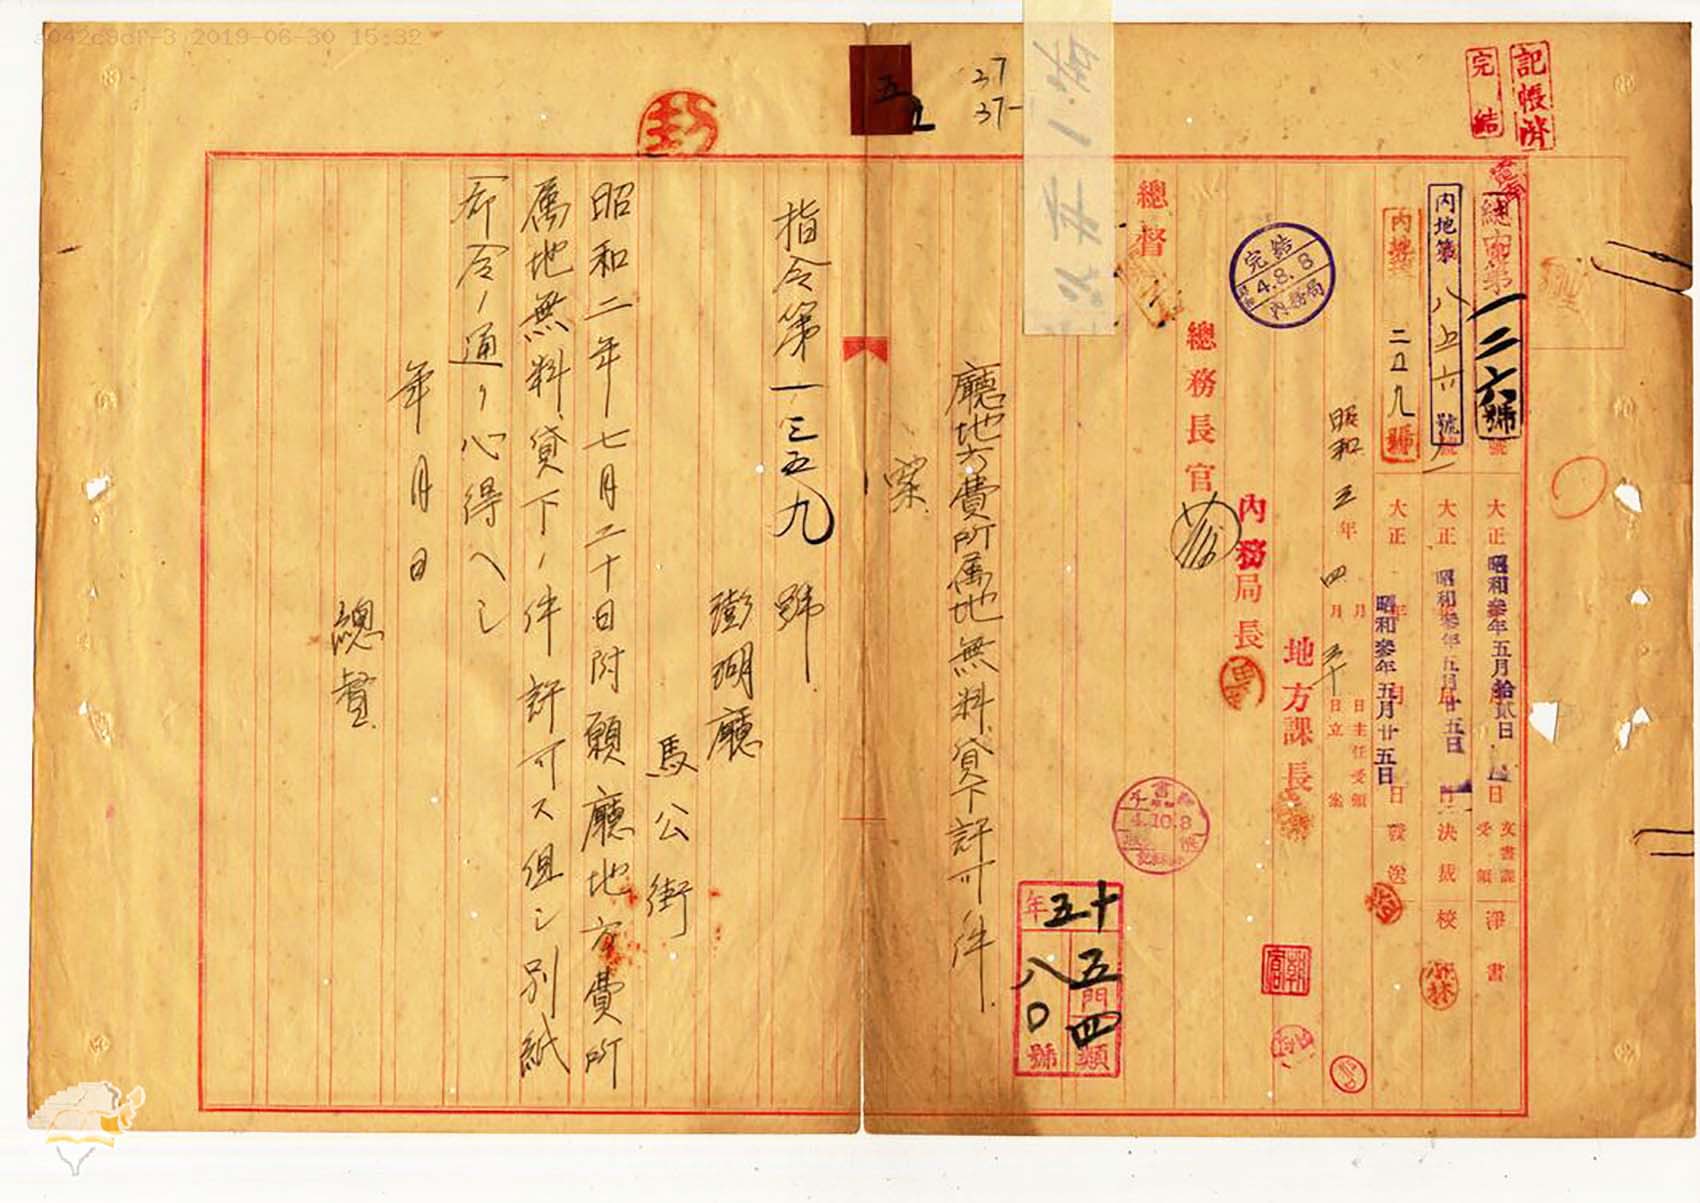 a042c9cf-3 2019-06-30 15:32
記帳濟
完結
一二六號
內地第八五六號
二五九號
大正 昭和參年五月拾貳日
文書課受領
淨書
大正 昭和參年五月廿五日
決裁
校
大正 昭和參年五月廿五日
發送
月 日主任受領
昭和三年四月三十日立案
地方課長
內務局長
總務長官
總督
完結
4.8.8
內務局
4.10.8
十五年
五門四類
八〇號
37
37-
五
廳地方費所属地無料貸下許可ノ件
案
指令第一三五九號
澎湖廳
馬公街
昭和二年七月二十日附願廳地方費所
属地無料貸下ノ件許可ス但シ別紙
命令ノ通リ心得ヘシ
年月日
總督